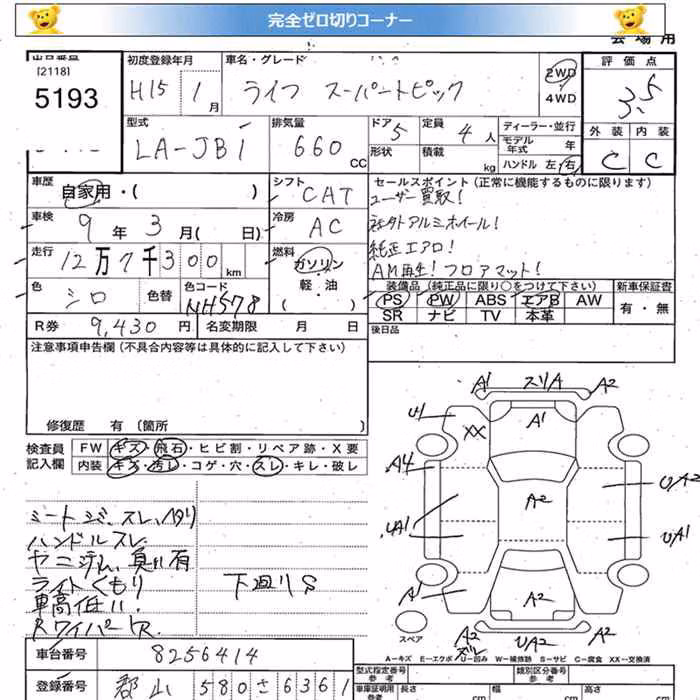 完全ゼロ切りコーナー
[2118]
5193
初度登録年月
H15 1 月
車名・グレード
ライフ スーパートピック
2WD
4WD
評価点
3.5
外装 内装
C C
型式
LA-JB1
排気量
660 CC
ドア 5
形状
定員 4 人
積載 kg
ディーラー・並行
モデル年式 年
ハンドル 左・右
車歴
自家用・( )
シフト
CAT
セールスポイント(正常に機能するものに限ります)
ユーザー買取!
社外アルミホイール!
純正エアロ!
AM再生!フロアマット!
車検
9 年 3 月( 日)
冷房
AC
走行
12万7千300 km
燃料
ガソリン・軽・油
( )
色
シロ
色替
色コード
NH578
装備品(純正品に限り○をつけて下さい)
PS PW ABS エアB AW
SR ナビ TV 本革
新車保証書
有・無
R券 9,430 円
名変期限 月 日
後日品
注意事項申告欄(不具合内容等は具体的に記入して下さい)
修復歴 有(箇所 )
検査員記入欄
FW キズ・飛石・ヒビ割・リペア跡・X要
内装 キズ・汚レ・コゲ・穴・スレ・キレ・破レ
ハンドルスレ
ライトくもり
車高低い
RワイパーレR.
下廻りS
A1 スリA A2
A1
XX
A4
U/A2
A2
UA1
U/A1
A1
A2
A2 UA2 A2
スペア
A-キズ E-エクボ U-凹み W-補修跡 S-サビ C-腐食 XX-交換済
車台番号 8256414
登録番号 郡山 580 さ 6361
型式指定番号
参考
類別区分番号
参考
車庫証明用
参考
長さ cm
幅 cm
高さ cm